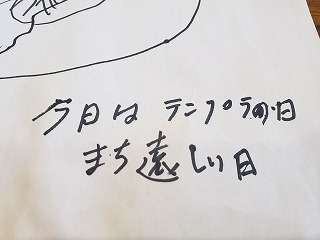 今日は テンプラの日
まち遠しい日